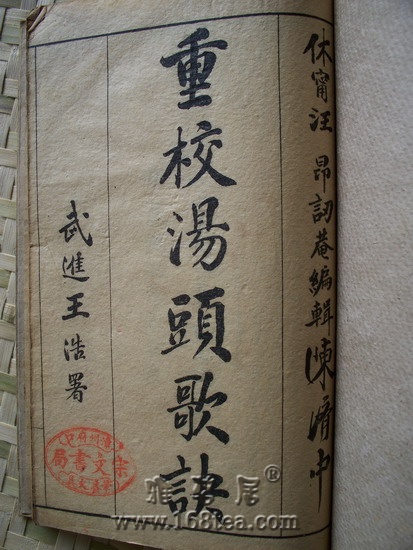 休甯汪昂訒菴編輯陳
重校湯頭歌訣
武進王浩署
宗文書局
雅 居®
www.168tea.com